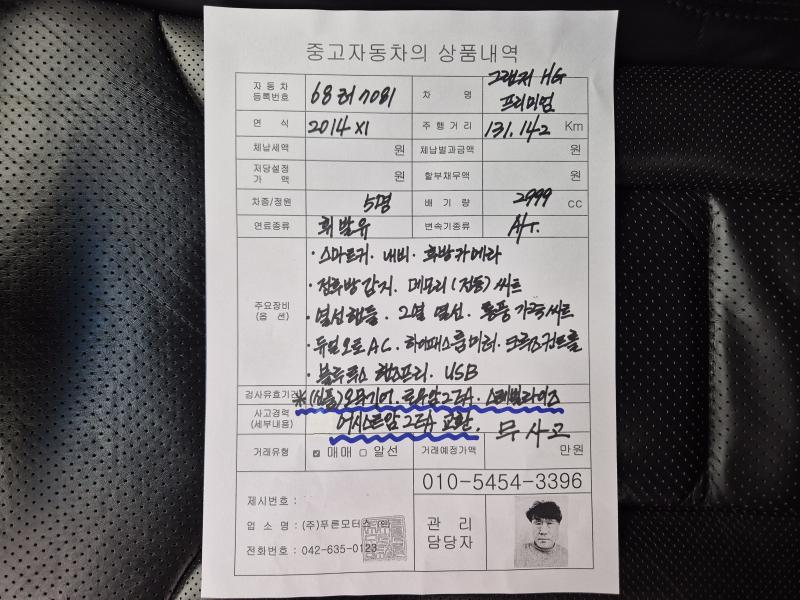 중고자동차의 상품내역
자동차 등록번호 68러7081 차명 그랜져 HG 프리미엄
연식 2014 XI 주행거리 131,142 Km
체납세액 원 체납벌과금액 원
저당설정가액 원 할부채무액 원
차종/정원 5명 배기량 2999 cc
연료종류 휘발유 변속기종류 A/T.
주요장비 (옵션)
· 스마트키. 내비. 후방카메라
· 전후방감지. 메모리(전동)씨트
· 열선핸들. 2열 열선. 통풍 가죽씨트
· 듀얼오토AC. 하이패스룸미러. 크루즈컨트롤
· 블루투스 핸즈프리. USB
검사유효기간 ※(신품)오무기어. 로우암 2EA. 스테빌라이즈
사고경력 (세부내용) 어시스트암 2EA 교환. 무사고
거래유형 ☑ 매매 □ 알선 거래예정가액 만원
010-5454-3396
제시번호 :
업소명 : (주)푸른모터스
전화번호 : 042-635-0123
관리 담당자